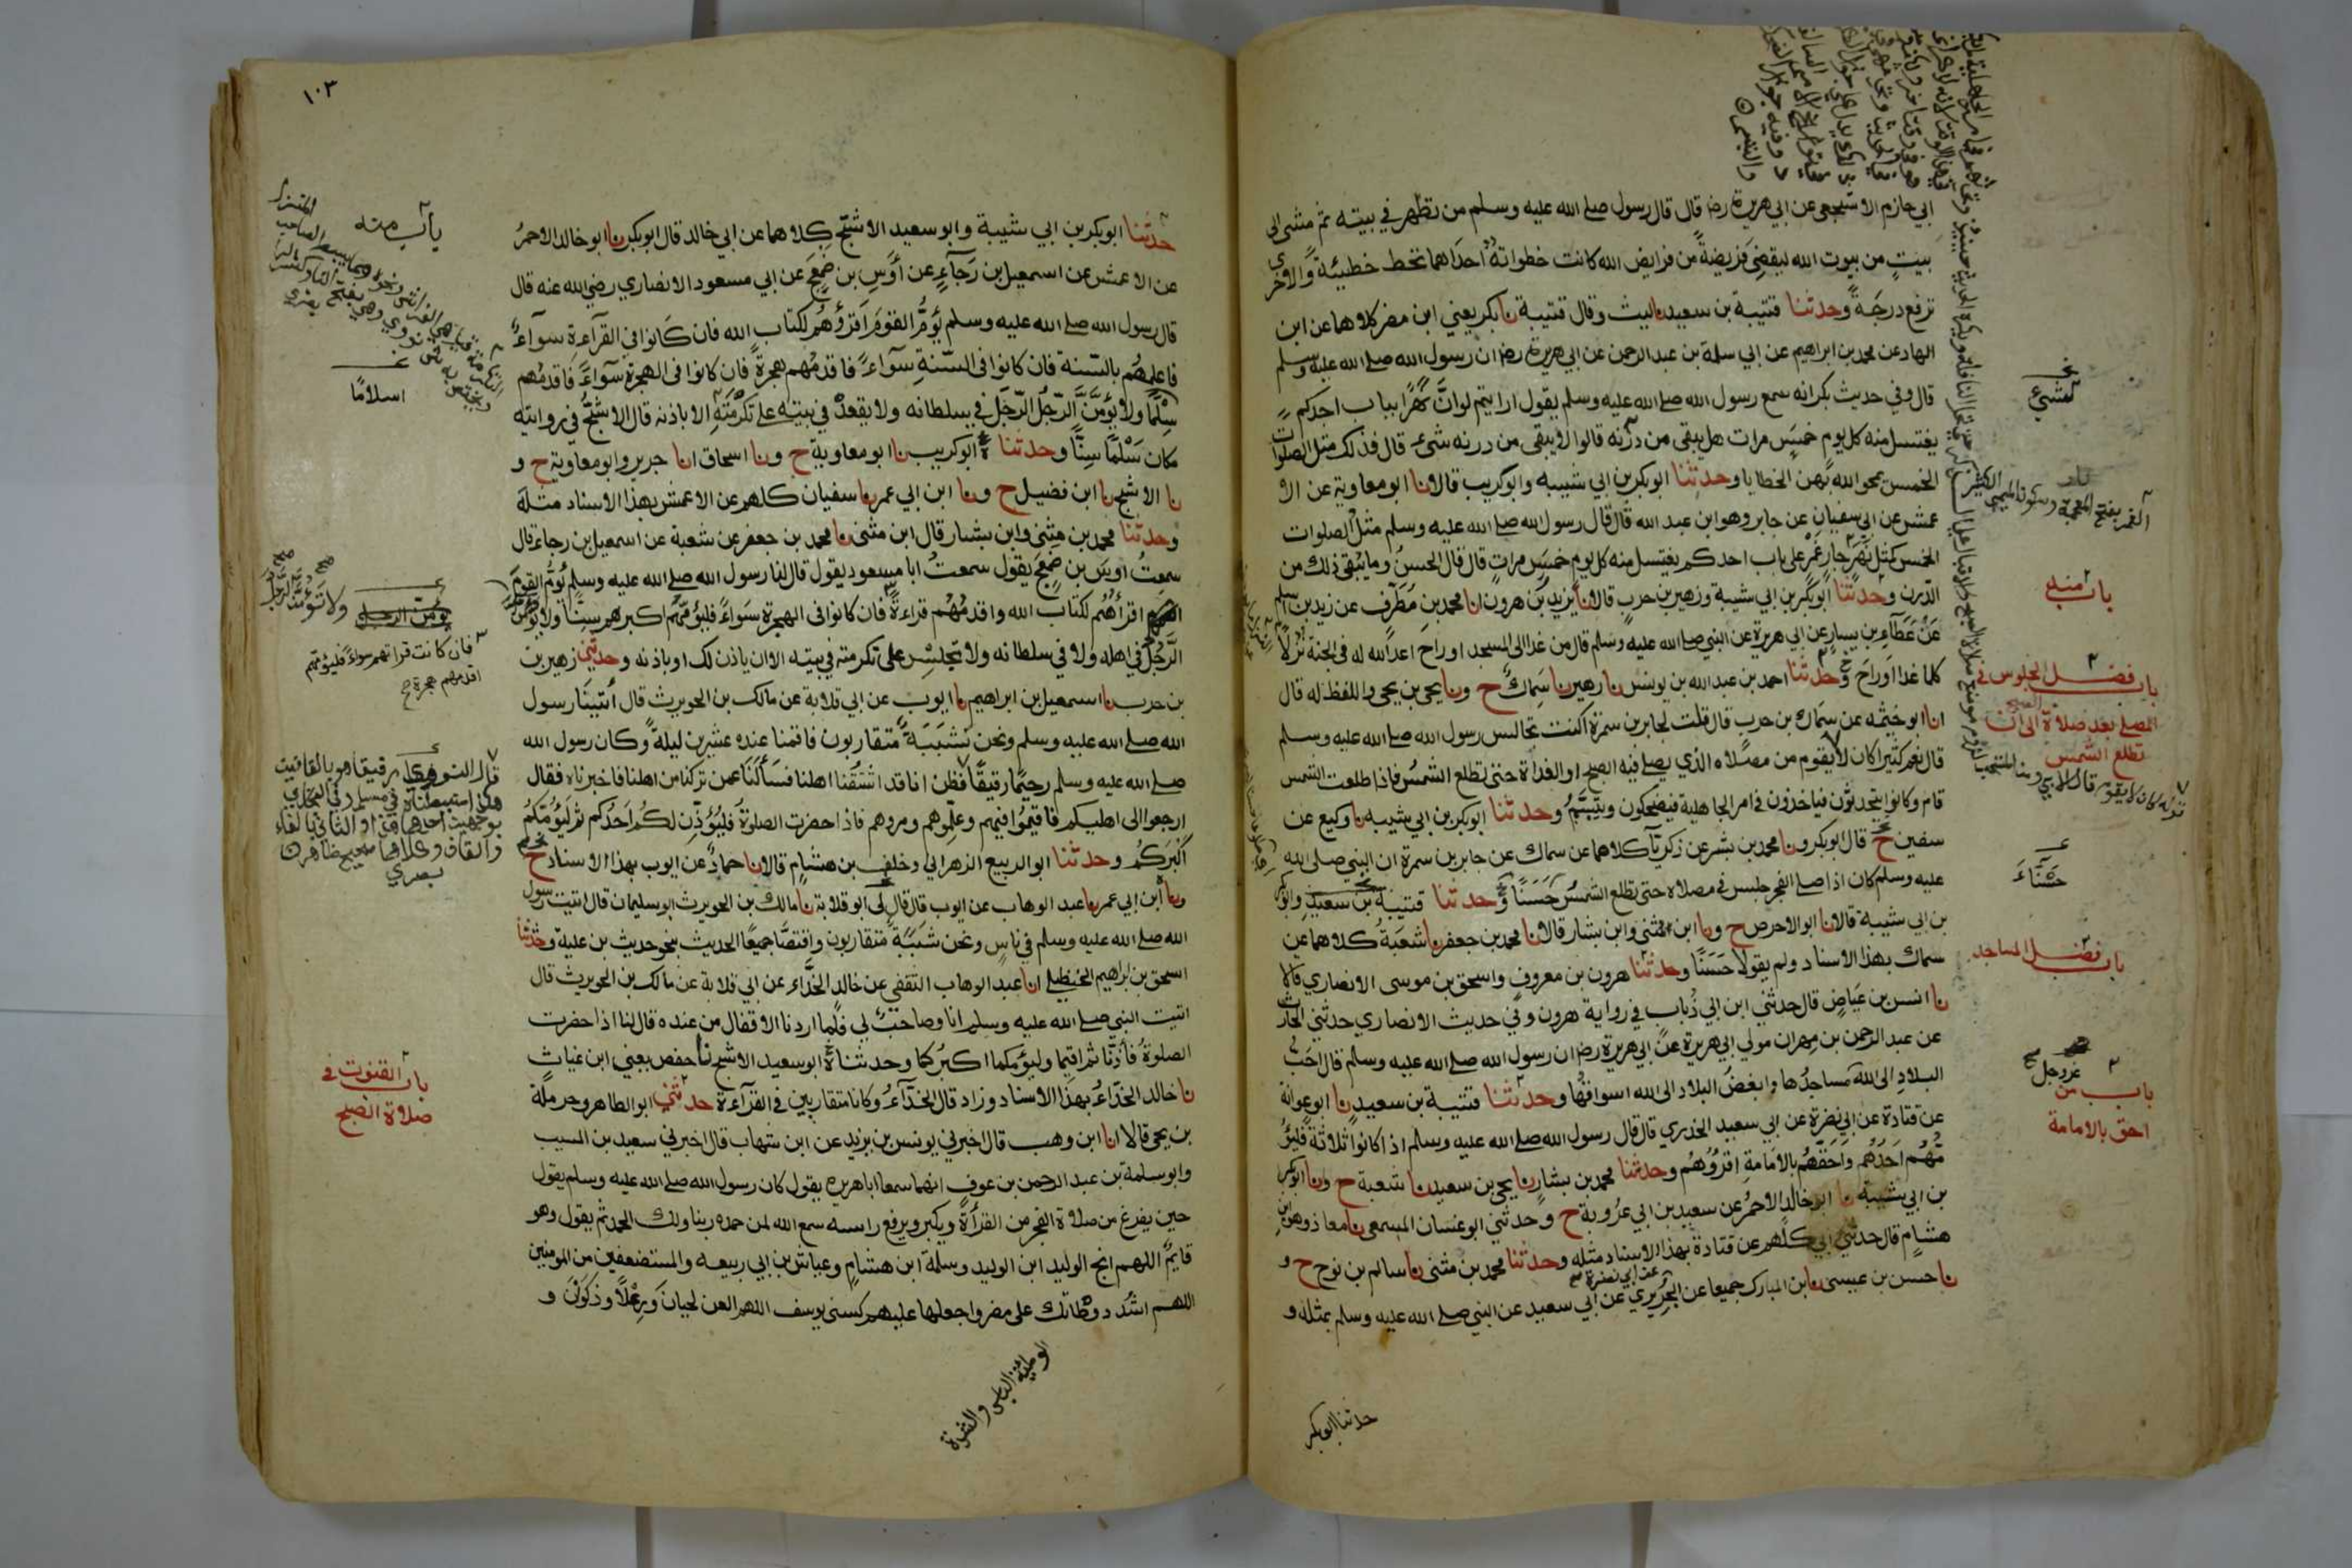 ابي حازم الاشجعي عن ابي هريرة رض قال قال رسول صلى الله عليه وسلم من تطهر في بيته ثم مشى الى
بيت من بيوت الله ليقضي فريضة من فرايض الله كانت خطواتة احداهما تخط خطيئة والاخرى
ترفع درجة وحدثنا قتيبة بن سعيد نا ليث وقال قتيبة نا بكر يعني ابن مضر كلاهما عن ابن
الهاد عن محمد بن ابراهيم عن ابي سلمة بن عبد الرحمن عن ابي هريرة رض ان رسول الله صلى الله عليه وسلم
قال وفي حديث بكر انه سمع رسول الله صلى الله عليه وسلم يقول ارايتم لو ان نهرا بباب احدكم
يغتسل منه كل يوم خمس مرات هل يبقى من درنه قالوا لا يبقى من درنه شيء قال فذلك مثل الصلوات
الخمس يمحو الله بهن الخطايا وحدثنا ابو بكر بن ابي شيبه وابو كريب قالا نا ابو معاوية عن الا
عمش عن ابي سفيان عن جابر وهو ابن عبد الله قال قال رسول الله صلى الله عليه وسلم مثل الصلوات
الخمس كمثل نهر جار غمر على باب احدكم يغتسل منه كل يوم خمس مرات قال قال الحسن وما يبقى ذلك من
الدرن وحدثنا ابو بكر بن ابي شيبة وزهير بن حرب قالا نا يزيد بن هرون انا محمد بن مطرف عن زيد بن اسلم
عن عطاء بن يسار عن ابي هريرة عن النبي صلى الله عليه وسلم قال من غدا الى المسجد او راح اعد الله له في الجنة نزلا
كلما غدا او راح وحدثنا احمد بن عبد الله بن يونس نا زهير نا سماك ح ونا يحي بن يحي واللفظ له قال
انا ابو خيثمه عن سماك بن حرب قال قلت لجابر بن سمرة اكنت تجالس رسول الله صلى الله عليه وسلم
قال نعم كثيرا كان لا يقوم من مصلاه الذي يصلي فيه الصبح او الغداة حتى تطلع الشمس فاذا طلعت الشمس
قام وكانوا يتحدثون فياخذون في امر الجاهلية فيضحكون ويتبسم وحدثنا ابو بكر بن ابي شيبه نا وكيع عن
سفين ح قال ابو بكر ونا محمد بن بشر عن زكريا كلاهما عن سماك عن جابر بن سمرة ان النبي صلى الله
عليه وسلم كان اذا صلى الفجر جلس في مصلاه حتى تطلع الشمس حسنا وحدثنا قتيبة بن سعيد وابو بكر
بن ابي شيبة قالا نا ابو الاحوص ح ونا ابن مثنى وابن بشار قالا نا محمد بن جعفر نا شعبة كلاهما عن
سماك بهذا الاسناد ولم يقولا حسنا وحدثنا هرون بن معروف واسحق بن موسى الانصاري قالا
نا انس بن عياض قال حدثني ابن ابي ذباب في رواية هرون وفي حديث الانصاري حدثني الحارث
عن عبد الرحمن بن مهران مولى ابي هريرة عن ابي هريرة رض ان رسول الله صلى الله عليه وسلم قال احب
البلاد الى الله مساجدها وابغض البلاد الى الله اسواقها وحدثنا قتيبة بن سعيد نا ابو عوانة
عن قتادة عن ابي نضرة عن ابي سعيد الخدري قال قال رسول الله صلى الله عليه وسلم اذا كانوا ثلاثة فليؤ
مهم احدهم واحقهم بالامامة اقرؤهم وحدثنا محمد بن بشار نا يحي بن سعيد نا شعبة ح ونا ابو بكر
بن ابي شيبة نا ابو خالد الاحمر عن سعيد بن ابي عروبة ح وحدثني ابو غسان المسمعي نا معاذ وهو ابن
هشام قال حدثني ابي كلهم عن قتادة بهذا الاسناد مثله وحدثنا محمد بن مثنى نا سالم بن نوح ح و
نا حسن بن عيسى نا ابن المبارك جميعا عن الجريري عن ابي نضرة عن ابي سعيد عن النبي صلى الله عليه وسلم بمثله و
حدثنا ابو بكر
كشيء
الغمر بفتح المعجمة وسكون الميم الكثير
باب منه
باب فضل الجلوس في
المصلى بعد صلاة الصبح الى ان
تطلع الشمس
حسناء
باب فضل المساجد
عز وجل
باب من
احق بالامامة
١٠٣
حدثنا ابو بكر بن ابي شيبة وابو سعيد الاشج كلاهما عن ابي خالد قال ابو بكر نا ابو خالد الاحمر
عن الاعمش عن اسمعيل بن رجاء عن اوس بن ضمعج عن ابي مسعود الانصاري رضي الله عنه قال
قال رسول الله صلى الله عليه وسلم يؤم القوم اقرؤهم لكتاب الله فان كانوا في القراءة سواء
فاعلمهم بالسنة فان كانوا في السنة سواء فاقدمهم هجرة فان كانوا في الهجرة سواء فاقدمهم
سلما ولا يؤمن الرجل الرجل في سلطانه ولا يقعد في بيته على تكرمته الا باذنه قال الاشج في روايته
مكان سلما سنا وحدثنا ابو كريب نا ابو معاوية ح ونا اسحاق انا جرير وابو معاوية ح و
نا الاشج نا ابن فضيل ح ونا ابن ابي عمر نا سفيان كلهم عن الاعمش بهذا الاسناد مثله
وحدثنا محمد بن مثنى وابن بشار قال ابن مثنى نا محمد بن جعفر عن شعبة عن اسمعيل بن رجاء قال
سمعت اوس بن ضمعج يقول سمعت ابا مسعود يقول قال لنا رسول الله صلى الله عليه وسلم يؤم القوم
اقرأهم لكتاب الله واقدمهم قراءة فان كانوا في الهجرة سواء فليؤمهم اكبرهم سنا ولا يؤمن
الرجل في اهله ولا في سلطانه ولا تجلس على تكرمته في بيته الا ان ياذن لك او باذنه وحدثني زهير بن
بن حرب نا اسمعيل بن ابراهيم نا ايوب عن ابي قلابة عن مالك بن الحويرث قال اتينا رسول
الله صلى الله عليه وسلم ونحن شببة متقاربون فاقمنا عنده عشرين ليلة وكان رسول الله
صلى الله عليه وسلم رحيما رقيقا فظن انا قد اشتقنا اهلنا فسألنا عمن تركنا من اهلنا فاخبرناه فقال
ارجعوا الى اهليكم فاقيموا فيهم وعلموهم ومروهم فاذا حضرت الصلوة فليؤذن لكم احدكم ثم ليؤمكم
اكبركم وحدثنا ابو الربيع الزهراني وخلف بن هشام قالا نا حماد عن ايوب بهذا الاسناد ح
ونا ابن ابي عمر نا عبد الوهاب عن ايوب قال قال لي ابو قلابة نا مالك بن الحويرث ابو سليمان قال اتيت رسول
الله صلى الله عليه وسلم في ناس ونحن شببة متقاربون واقتصا جميعا الحديث بنحو حديث بن علية وحدثنا
اسحق بن ابراهيم الحنظلي انا عبد الوهاب الثقفي عن خالد الحذاء عن ابي قلابة عن مالك بن الحويرث قال
اتيت النبي صلى الله عليه وسلم انا وصاحب لي فلما اردنا الاقفال من عنده قال لنا اذا حضرت
الصلوة فاذنا ثم اقيما وليؤمكما اكبركما وحدثناه ابو سعيد الاشج نا حفص يعني ابن غياث
نا خالد الحذاء بهذا الاسناد وزاد قال الحذاء وكانا متقاربين في القراءة حدثني ابو الطاهر وحرملة
بن يحي قالا انا ابن وهب قال اخبرني يونس بن يزيد عن ابن شهاب قال اخبرني سعيد بن المسيب
وابو سلمة بن عبد الرحمن بن عوف انهما سمعا ابا هريره يقول كان رسول الله صلى الله عليه وسلم يقول
حين يفرغ من صلاة الفجر من القرأة ويكبر ويرفع راسه سمع الله لمن حمده ربنا ولك الحمد ثم يقول وهو
قايم اللهم انج الوليد ابن الوليد وسلمة ابن هشام وعياش بن ابي ربيعه والمستضعفين من المومنين
اللهم اشدد وطاتك على مضر واجعلها عليهم كسنى يوسف اللهم العن لحيان ورعلا وذكوان و
باب منه
اسلاما
فان كانت قراتهم سواء فليؤمهم
اقدمهم هجرة
باب القنوت في
صلاة الصبح